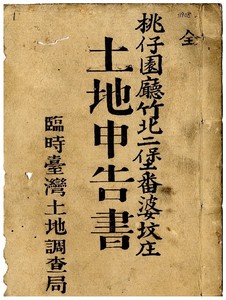 全
桃仔園廳竹北二堡番婆坟庄
土地申告書
臨時臺灣土地調查局